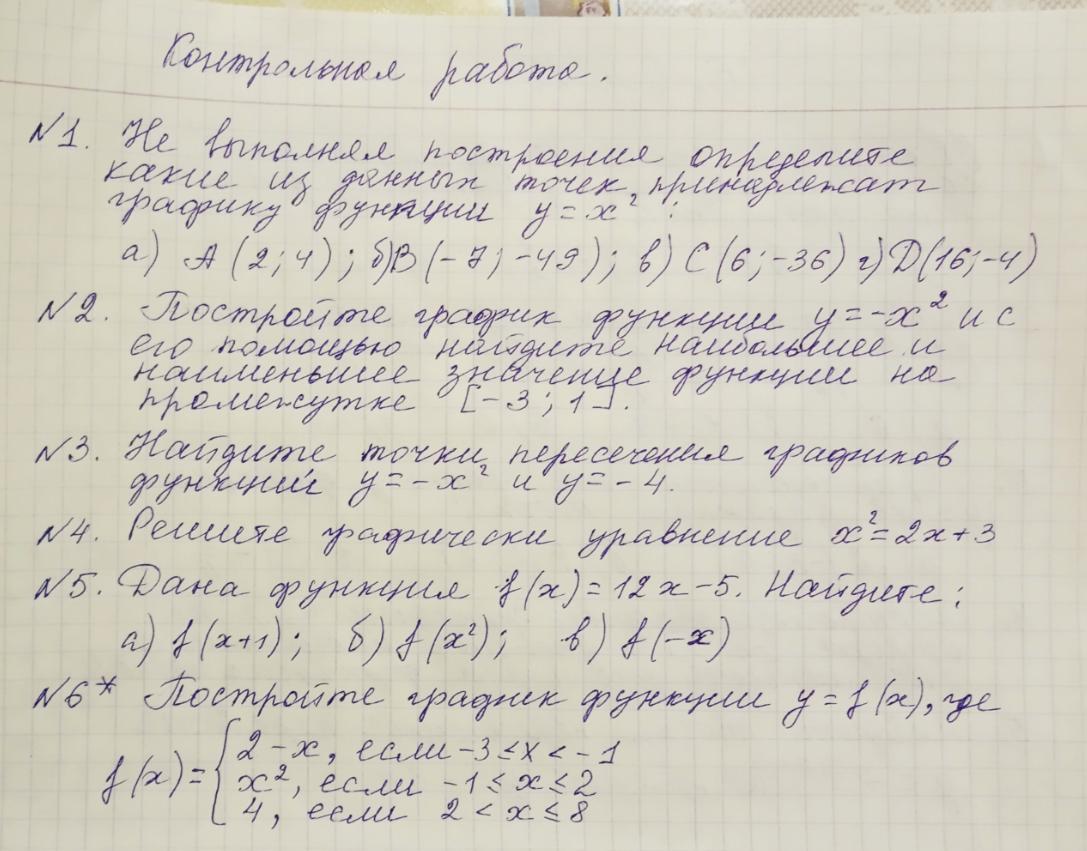 Контрольная работа.
№1. Не выполняя построения определите
какие из данных точек, принадлежат
графику функции y = x² :
а) A (2; 4); б) B (-7; -49); в) C (6; -36) г) D (16; -4)
№2. Постройте график функции y = -x² и с
его помощью найдите наибольшее и
наименьшее значение функции на
промежутке [-3; 1].
№3. Найдите точки пересечения графиков
функций y = -x² и y = -4.
№4. Решите графически уравнение x² = 2x + 3
№5. Дана функция f(x) = 12x - 5. Найдите:
а) f(x+1); б) f(x²); в) f(-x)
№6* Постройте график функции y = f(x), где
f(x) = { 2 - x, если -3 ≤ x < -1
x², если -1 ≤ x ≤ 2
4, если 2 < x ≤ 8